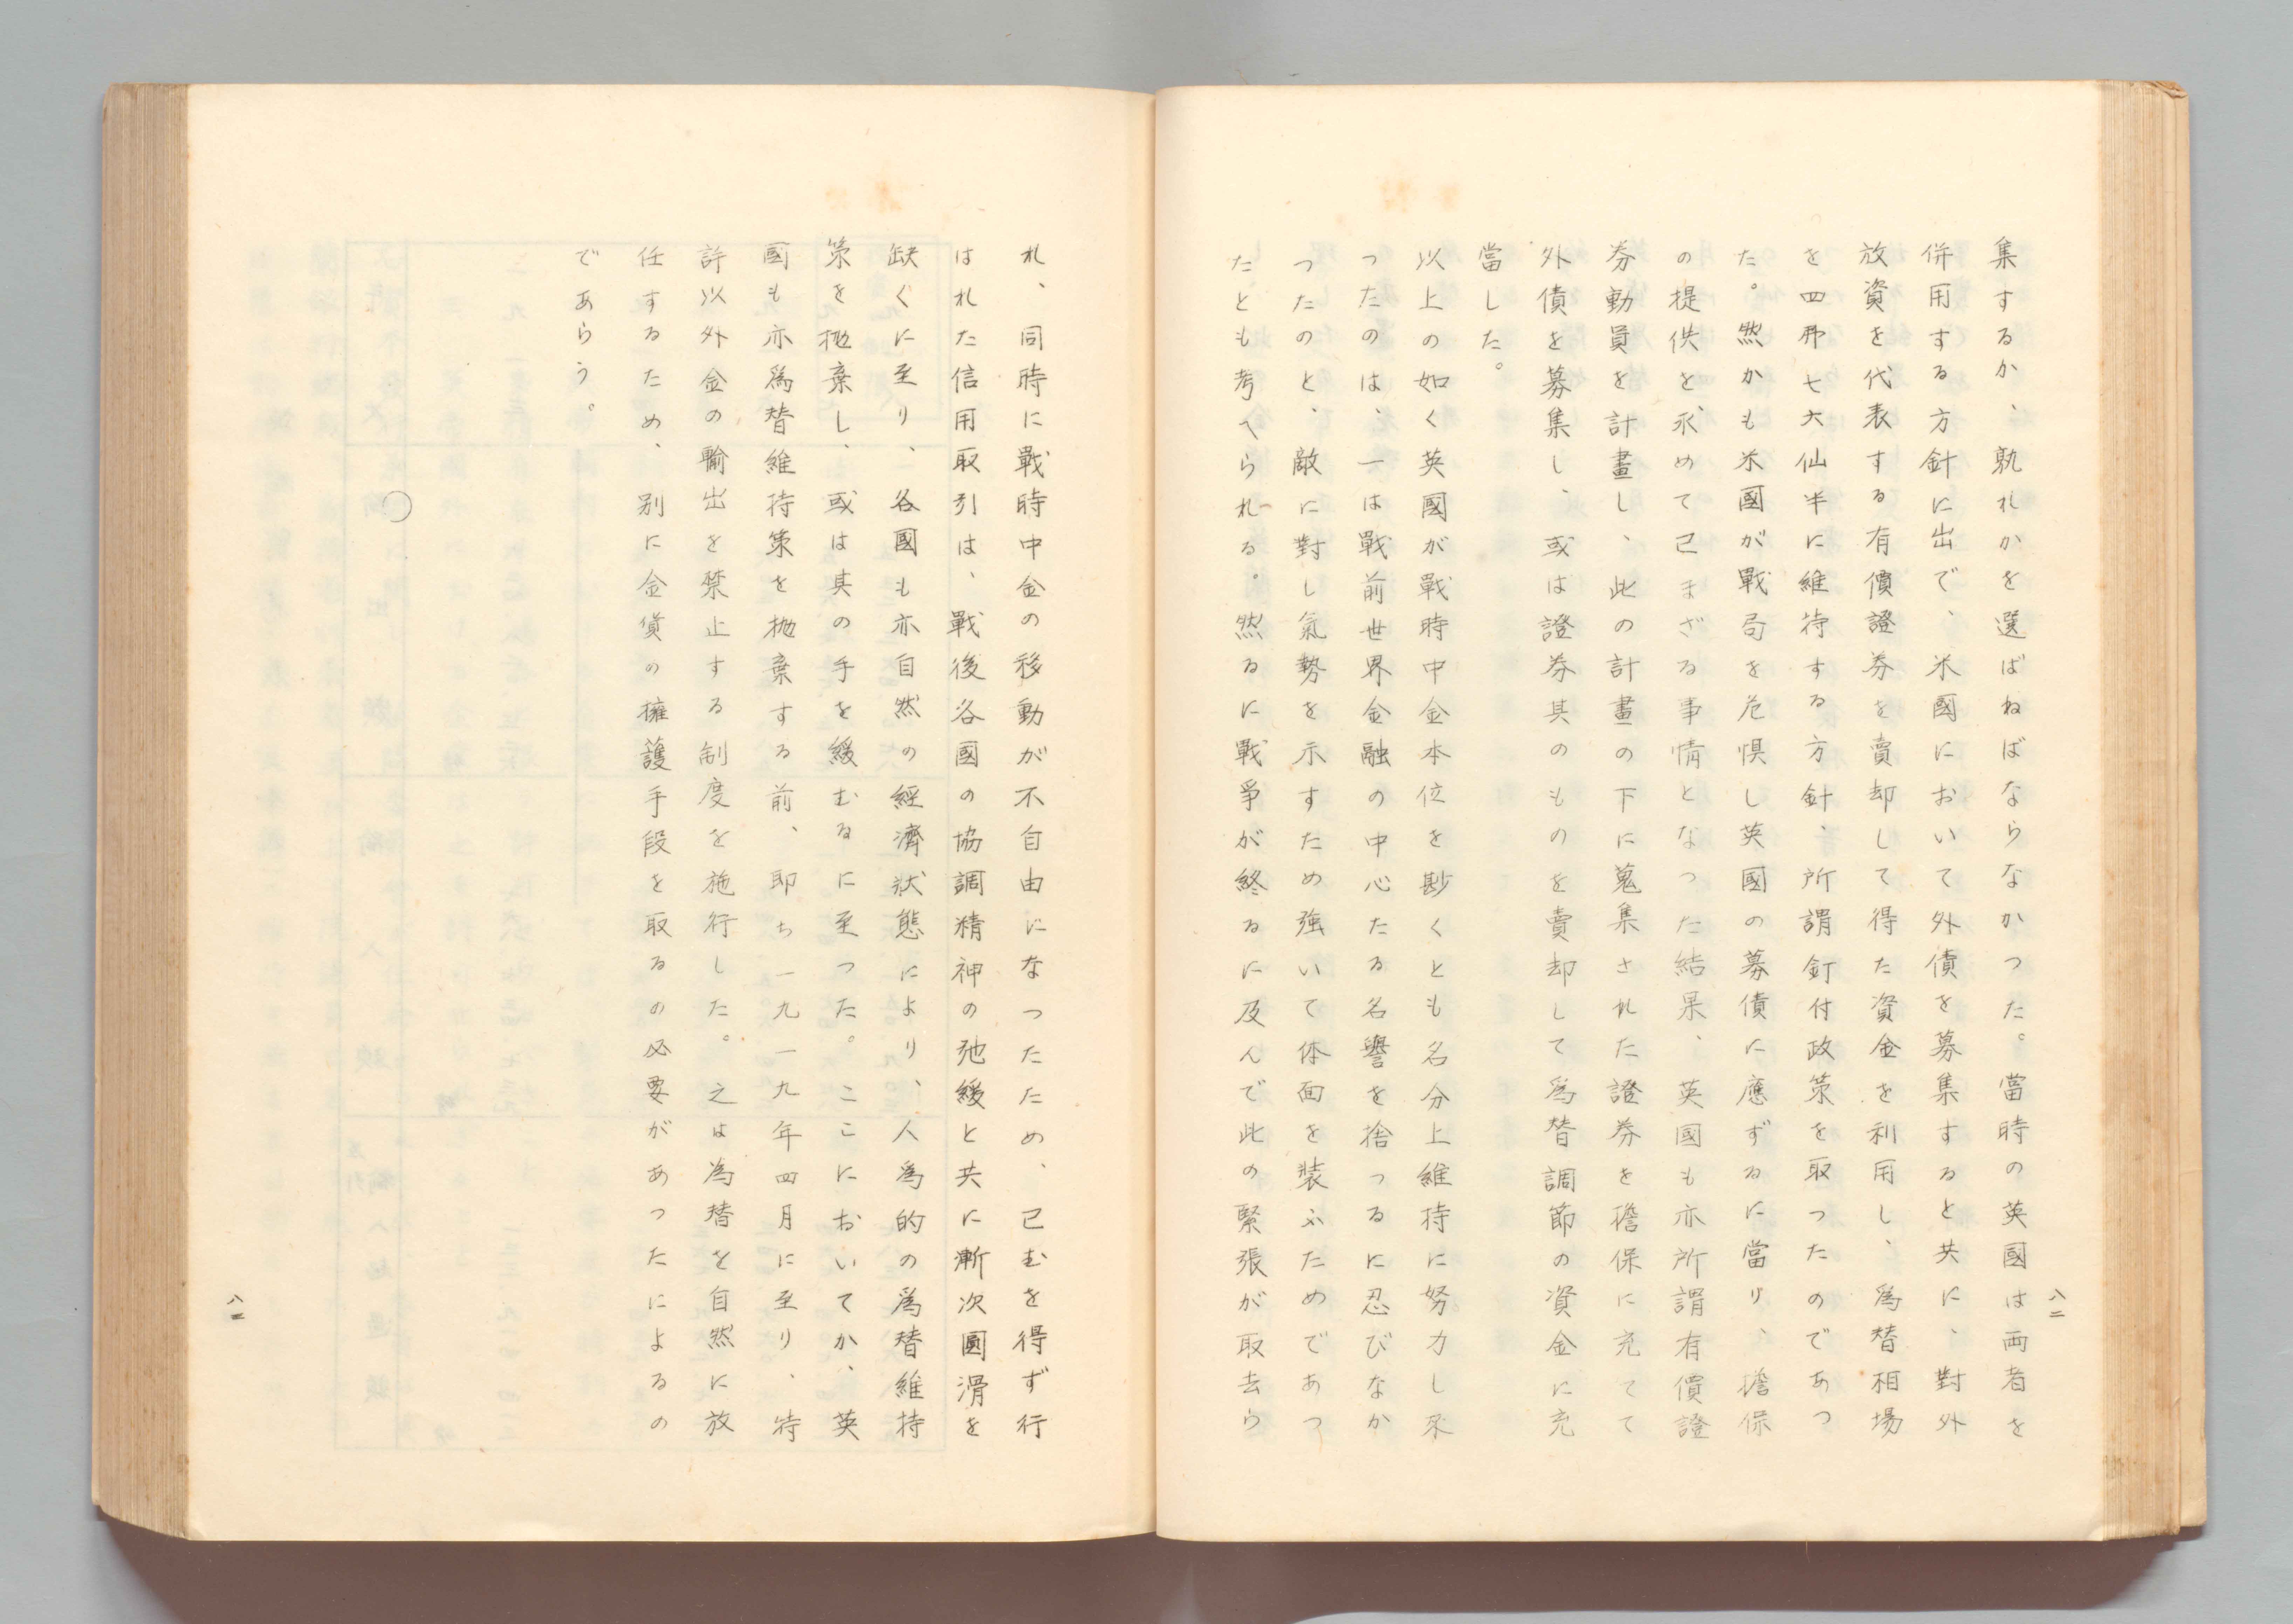 集するか、孰れかを選ばねばならなかつた。當時の英國は両者を
併用する方針に出で、米國において外債を募集すると共に、對外
放資を代表する有價證券を賣却して得た資金を利用し、爲替相場
を四弗七六仙半に維持する方針、所謂釘付政策を取つたのであつ
た。然かも米國が戰局を危惧し英國の募債に應ずるに當り、擔保
の提供を求めて已まざる事情となつた結果、英國も亦所謂有價證
券動員を計畫し、此の計畫の下に蒐集された證券を擔保に充てて
外債を募集し、或は證券其のものを賣却して爲替調節の資金に充
當した。
以上の如く英國が戰時中金本位を尠くとも名分上維持に努力し來
つたのは、一は戰前世界金融の中心たる名譽を捨つるに忍びなか
つたのと、敵に對し氣勢を示すため強いて体面を装ふためであつ
たとも考へられる。然るに戰爭が終るに及んで此の緊張が取去ら
八二
れ、同時に戰時中金の移動が不自由になつたため、已むを得ず行
はれた信用取引は、戰後各國の協調精神の弛緩と共に漸次圓滑を
缺ぐに至り、各國も亦自然の經濟狀態により、人爲的の爲替維持
策を抛棄し、或は其の手を緩むるに至つた。ここにおいてか、英
國も亦爲替維持策を抛棄する前、即ち一九一九年四月に至り、特
許以外金の輸出を禁止する制度を施行した。之は為替を自然に放
任するため、別に金貨の擁護手段を取るの必要があつたによるの
であらう。